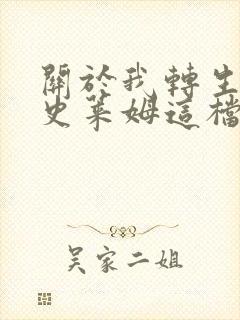 關於我轉生
史萊姆這檔
吳家二姐